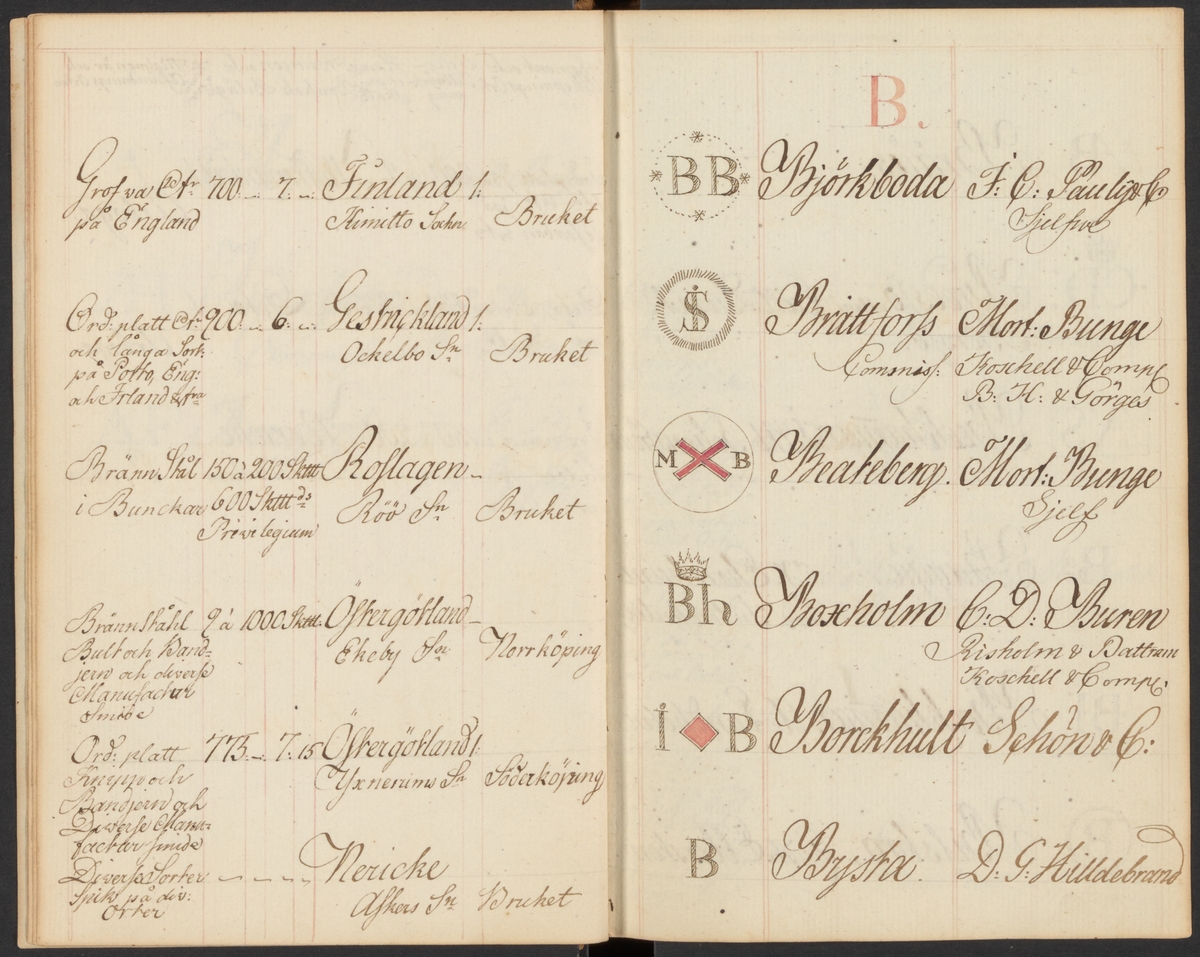 Grofva Cd fr 700. 7. Finland 1:
på England Kimitto Sochn. Bruket
Ord: platt Cfr 900. 6: Gestrickland 1:
och långa Sort: Ockelbo Sn Bruket
på Porto, Eng:
och Irland & fra
Bränn Stål 150 à 200 Skttt Roslagen
i Bunckar 600 Skttt ds Röö Sn Bruket
Privilegium
Bränn Ståhl 9 à 1000 Skttt. Östergöthland
Bult och Band= Ekeby Sn Norrköping
jern och diverse
Manufactur
Smide
Ord: platt 775. 7: 15 Östergöthland 1:
Knipp och Yxnerums Sn Söderköping
Bandjern och
Diverse Manu=
factur smide
Diverse Sorter Nericke
Spik på div: Askers Sn Bruket
Orter
B.
BB Björkboda F: C: Pauly & C
Sjelfve
Brattforss Mort: Bunge
Commiss: Koschell & Comp
B: H: & Görges
M B Beateberg. Mort: Bunge
Sjelf
Bh Boxholm C: D: Buren
Risholm & Battram
Koschell & Comp
I B Borckhult Schön & C:
B Brysta. D: G: Hilldebrand